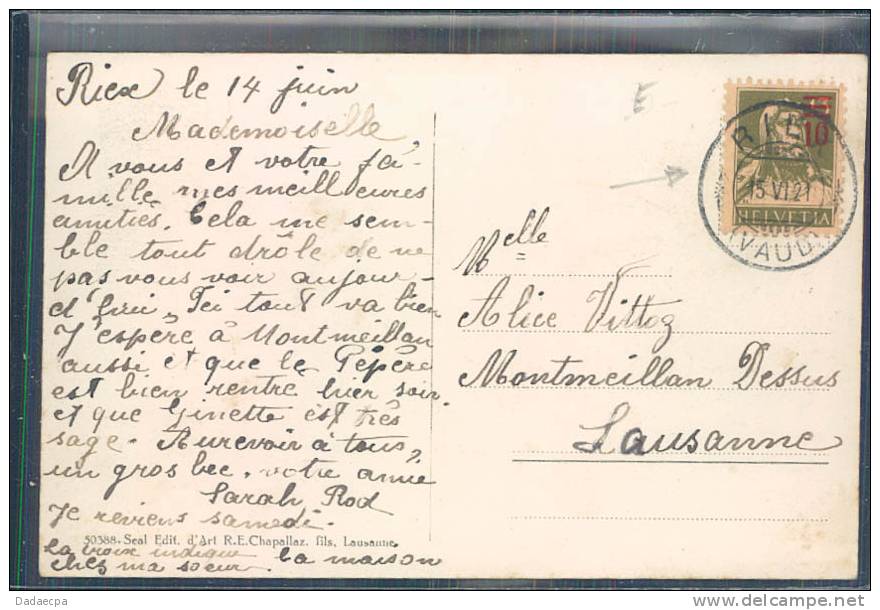 Riex le 14 juin
Mademoiselle
A vous et votre fa-
mille mes meilleures
amitiés. Cela me sem-
ble tout drôle de ne
pas vous voir aujour-
d'hui, Ici tout va bien
J'espère à Montmeillan
aussi et que le Pépère
est bien rentré hier soir.
et que Ginette est très
sage. Aurevoir à tous,
un gros bec, votre amie
Sarah Rod
Je reviens samedi.
50388. Seal Edit. d'Art R.E.Chapallaz. fils, Lausanne
la croix indique la maison
chez ma soeur.
E
15
10
RIEX
15 VI 21
HELVETIA
(VAUD)
Melle
Alice Vittoz
Montmeillan Dessus
Lausanne
Dadaecpa
http://www.delcampe.net